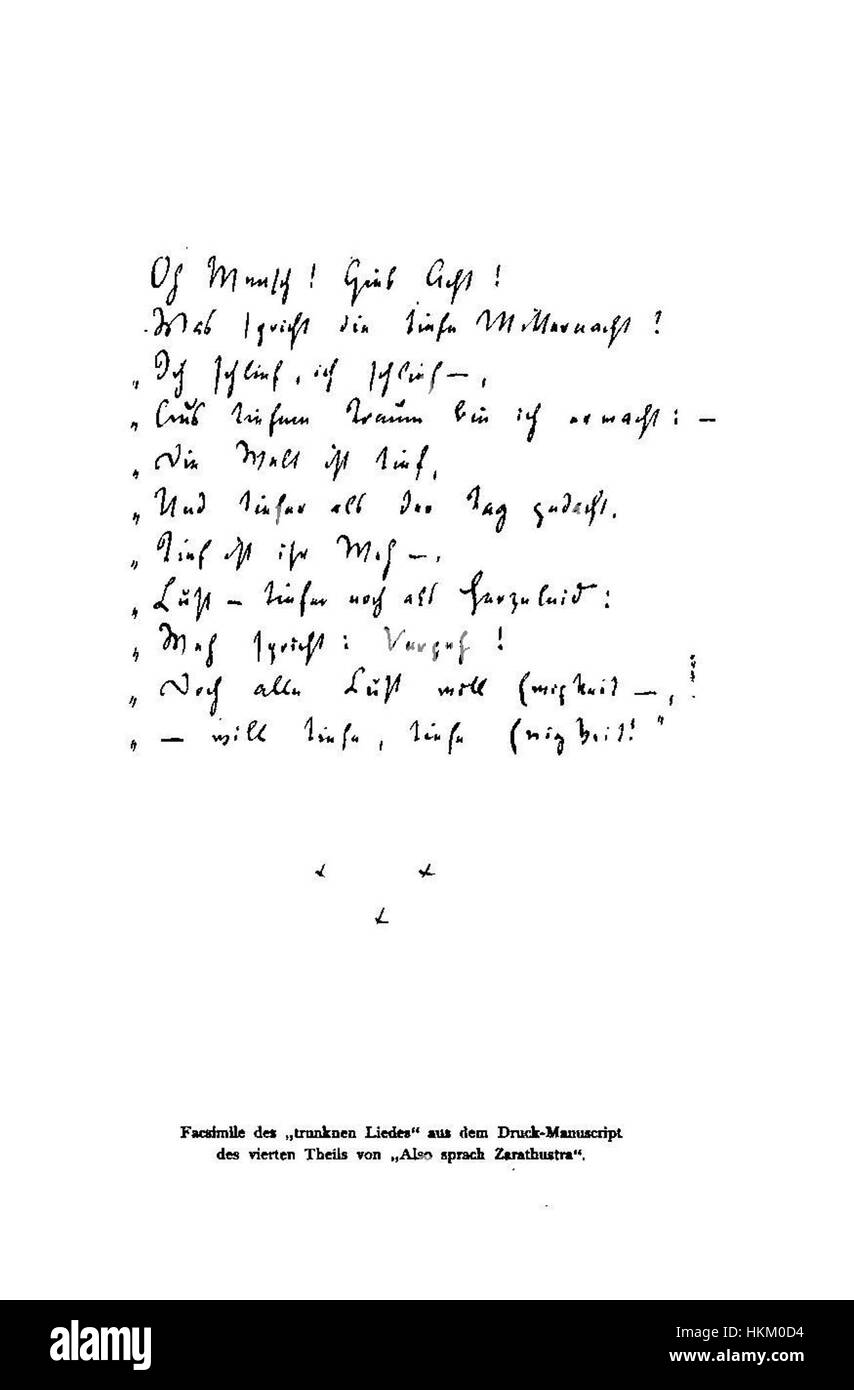 Oh Mensch! Gieb Acht!
Was spricht die tiefe Mitternacht?
„Ich schlief, ich schlief —,
„Aus tiefem Traum bin ich erwacht: —
„Die Welt ist tief,
„Und tiefer als der Tag gedacht.
„Tief ist ihr Weh —,
„Lust — tiefer noch als Herzeleid:
„Weh spricht: Vergeh!
„Doch alle Lust will Ewigkeit —, !
„— will tiefe, tiefe Ewigkeit!"
Facsimile des „trunknen Liedes“ aus dem Druck-Manuscript
des vierten Theils von „Also sprach Zarathustra“.
alamy
Image ID: HKM0D4
www.alamy.com